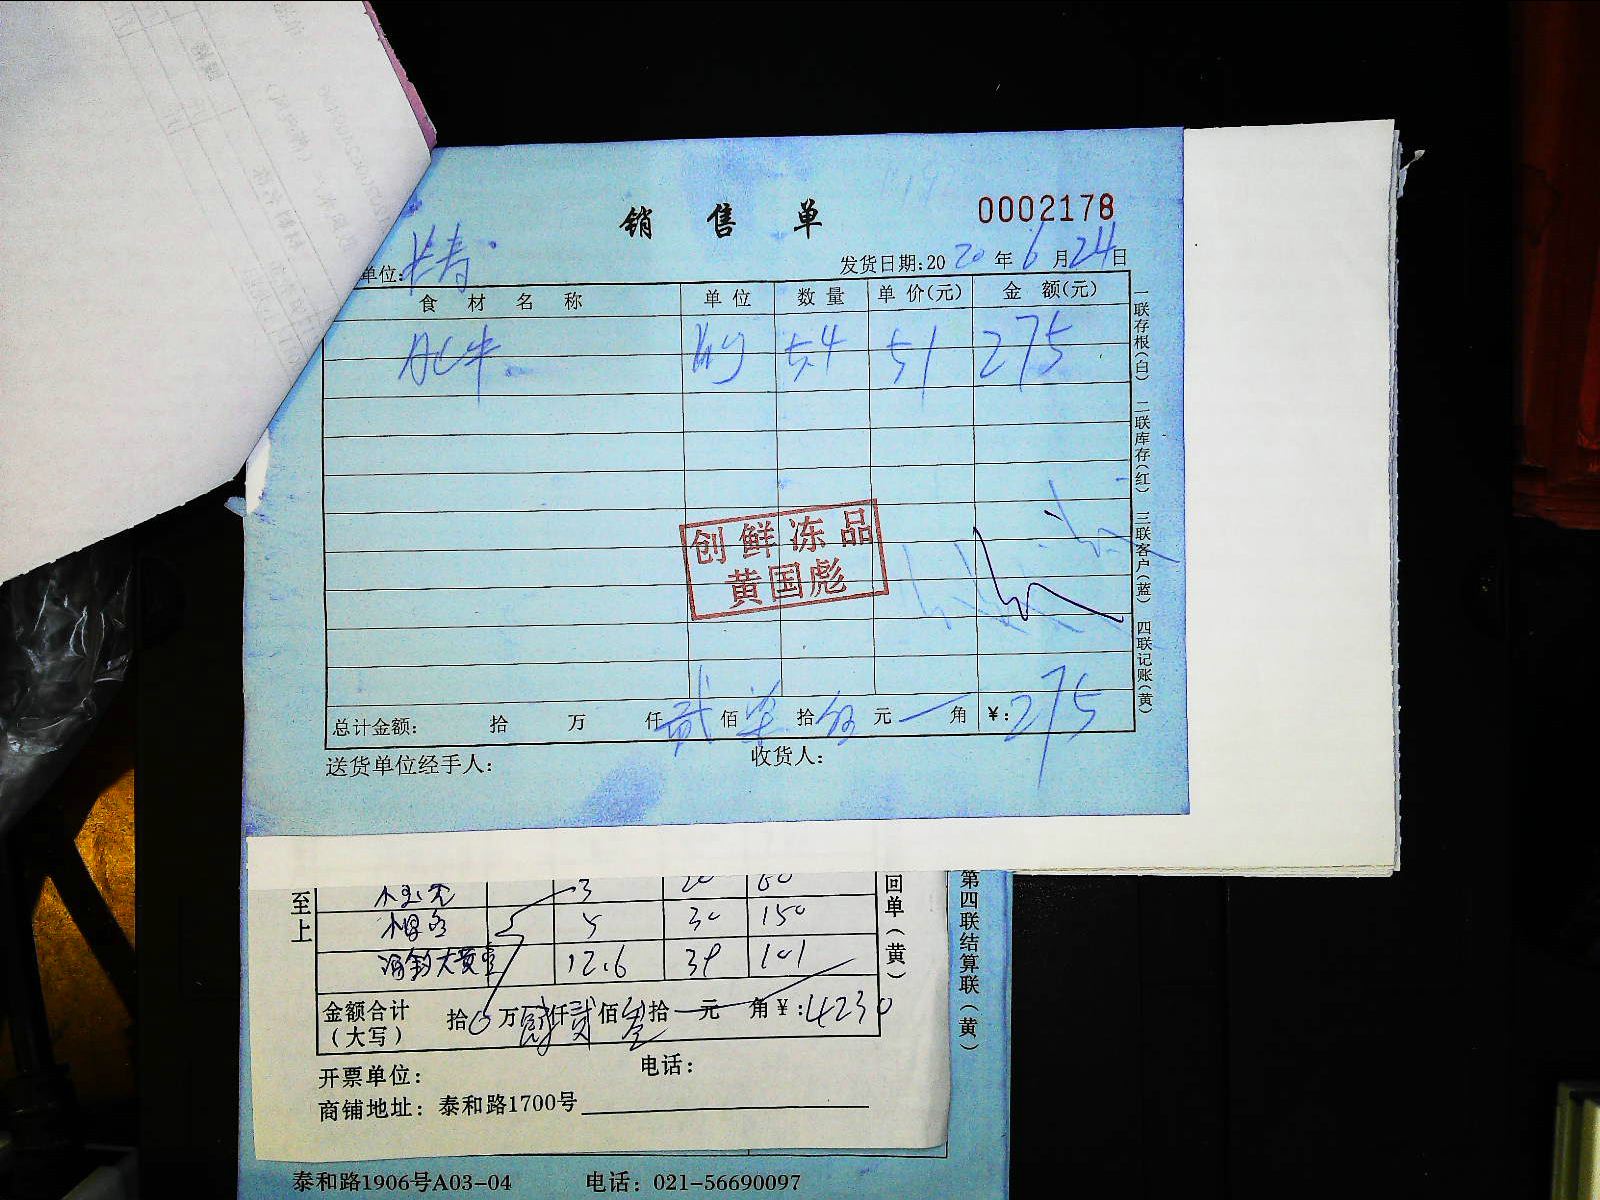 销售单 0002178
单位: 长寿 发货日期:2020年6月24日
食材名称 单位 数量 单价(元) 金额(元)
肥牛 5.4 51 275
创鲜冻品
黄国彪
总计金额: 拾 万 仟 贰佰 柒拾 伍元 一角 ¥:275
送货单位经手人: 收货人:
一联存根(白) 二联库存(红) 三联客户(蓝) 四联记账(黄)
至上
3 20 60
5 30 150
12.6 39
回单(黄)
金额合计(大写) 拾 万肆仟贰佰叁拾一元 角¥:4230
开票单位: 电话:
商铺地址: 泰和路1700号
第四联结算联(黄)
泰和路1906号A03-04 电话: 021-56690097